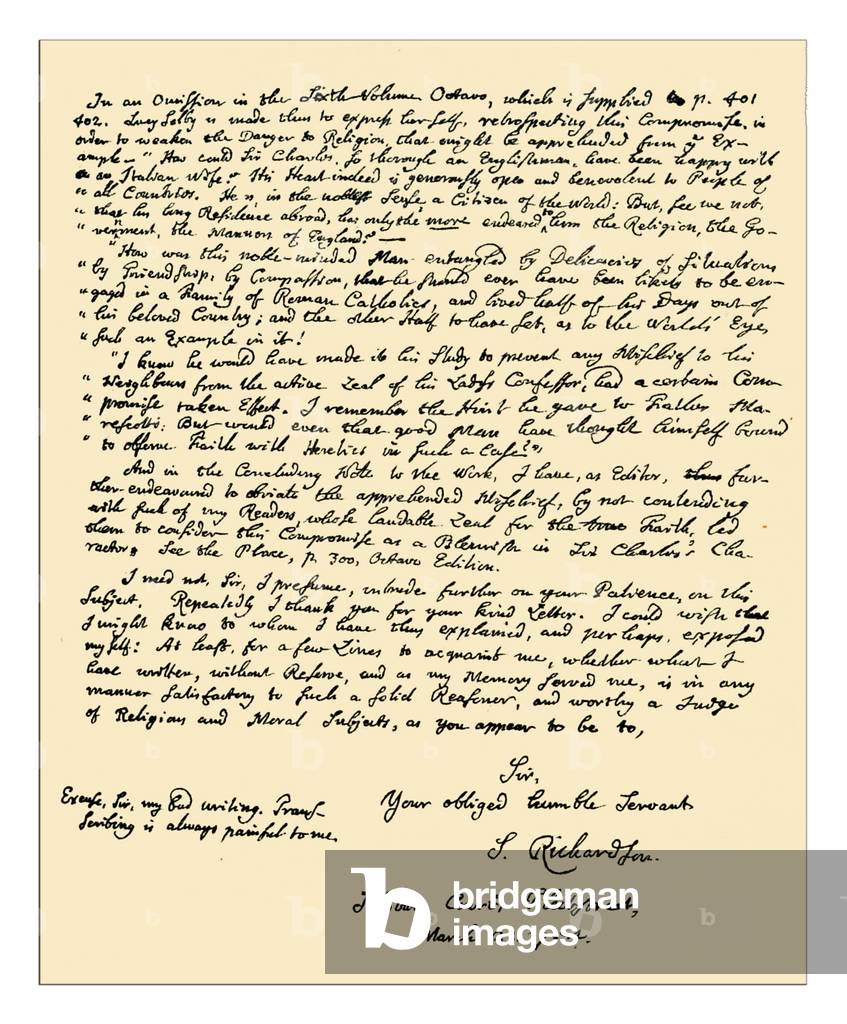 In an Omission in the Sixth Volume Octavo, which is supplied p. 401
402. Lucy Selby is made thus to express herself, retrospecting this Compromise, in
order to weaken the Danger to Religion, that might be apprehended from ye Ex-
ample — "How could Sir Charles, so thorough an Englishman, have been happy with
an Italian Wife? His Heart indeed is generously open and benevolent to People of
" all Countries. He is, in the noblest Sense, a Citizen of the World: But, see we not,
" that his long Residence abroad, has only the more endeared to him the Religion, the Go-
" vernment, the Manners of England? —
"How was this noble-minded Man entangled by Delicacies of Situation
" by Friendship, by Compassion, that he should ever have been likely to be en-
" gaged in a Family of Roman Catholics, and lived half of his Days out of
" his beloved Country; and the other Half to have set, as to the World's Eye,
" such an Example in it!
"I know he would have made it his Study to prevent any Mischief to his
" Neighbours from the active Zeal of his Lady's Confessor, had a certain Com-
" promise taken Effect. I remember the Hint he gave to Father Ma-
" rescotti: But would even that good Man have thought himself bound
" to observe Faith with Heretics in such a Case?"
And in the Concluding Note to the Work, I have, as Editor, thus fur-
ther endeavoured to obviate the apprehended Mischief, by not contending
with such of my Readers, whose laudable Zeal for the true Faith, led
them to consider this Compromise as a Blemish in Sir Charles's Cha-
racter. See the Place, p. 300, Octavo Edition.
I need not, Sir, I presume, intrude further on your Patience, on this
Subject. Repeatedly I thank you for your kind Letter. I could wish that
I might know to whom I have thus explained, and perhaps, exposed
myself: At least, for a few Lines to acquaint me, whether what I
have written, without Reserve, and as my Memory served me, is in any
manner satisfactory to such a solid Reasoner, and worthy a Judge
of Religious and Moral Subjects, as you appear to be to,
Sir,
Your obliged humble Servant
S. Richardson.
Excuse, Sir, my bad writing. Trans-
scribing is always painful to me.
bridgeman
images